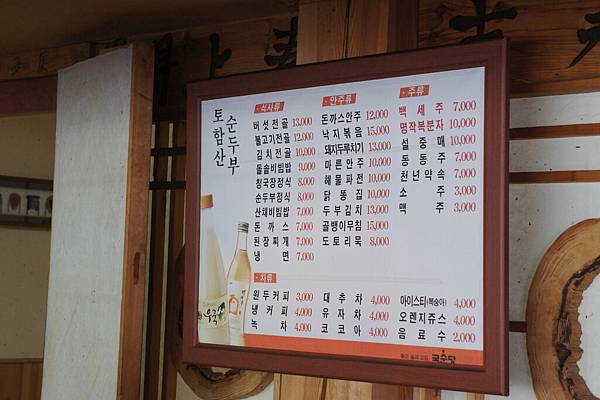 토함산
순두부
식사류
버섯전골 13,000
불고기전골 12,000
김치전골 10,000
돌솥비빔밥 9,000
청국장정식 8,000
순두부정식 8,000
산채비빔밥 7,000
돈까스 7,000
된장찌개 7,000
냉면 7,000
안주류
돈까스안주 12,000
낙지볶음 15,000
돼지두루치기 13,000
마른안주 10,000
해물파전 10,000
닭똥집 10,000
두부김치 13,000
골뱅이무침 15,000
도토리묵 8,000
주류
백세주 7,000
명작복분자 10,000
설중매 10,000
동동주 7,000
천년약속 7,000
소주 3,000
맥주 3,000
차류
원두커피 3,000
냉커피 4,000
녹차 4,000
대추차 4,000
유자차 4,000
코코아 4,000
아이스티(복숭아) 4,000
오렌지쥬스 4,000
음료수 2,000